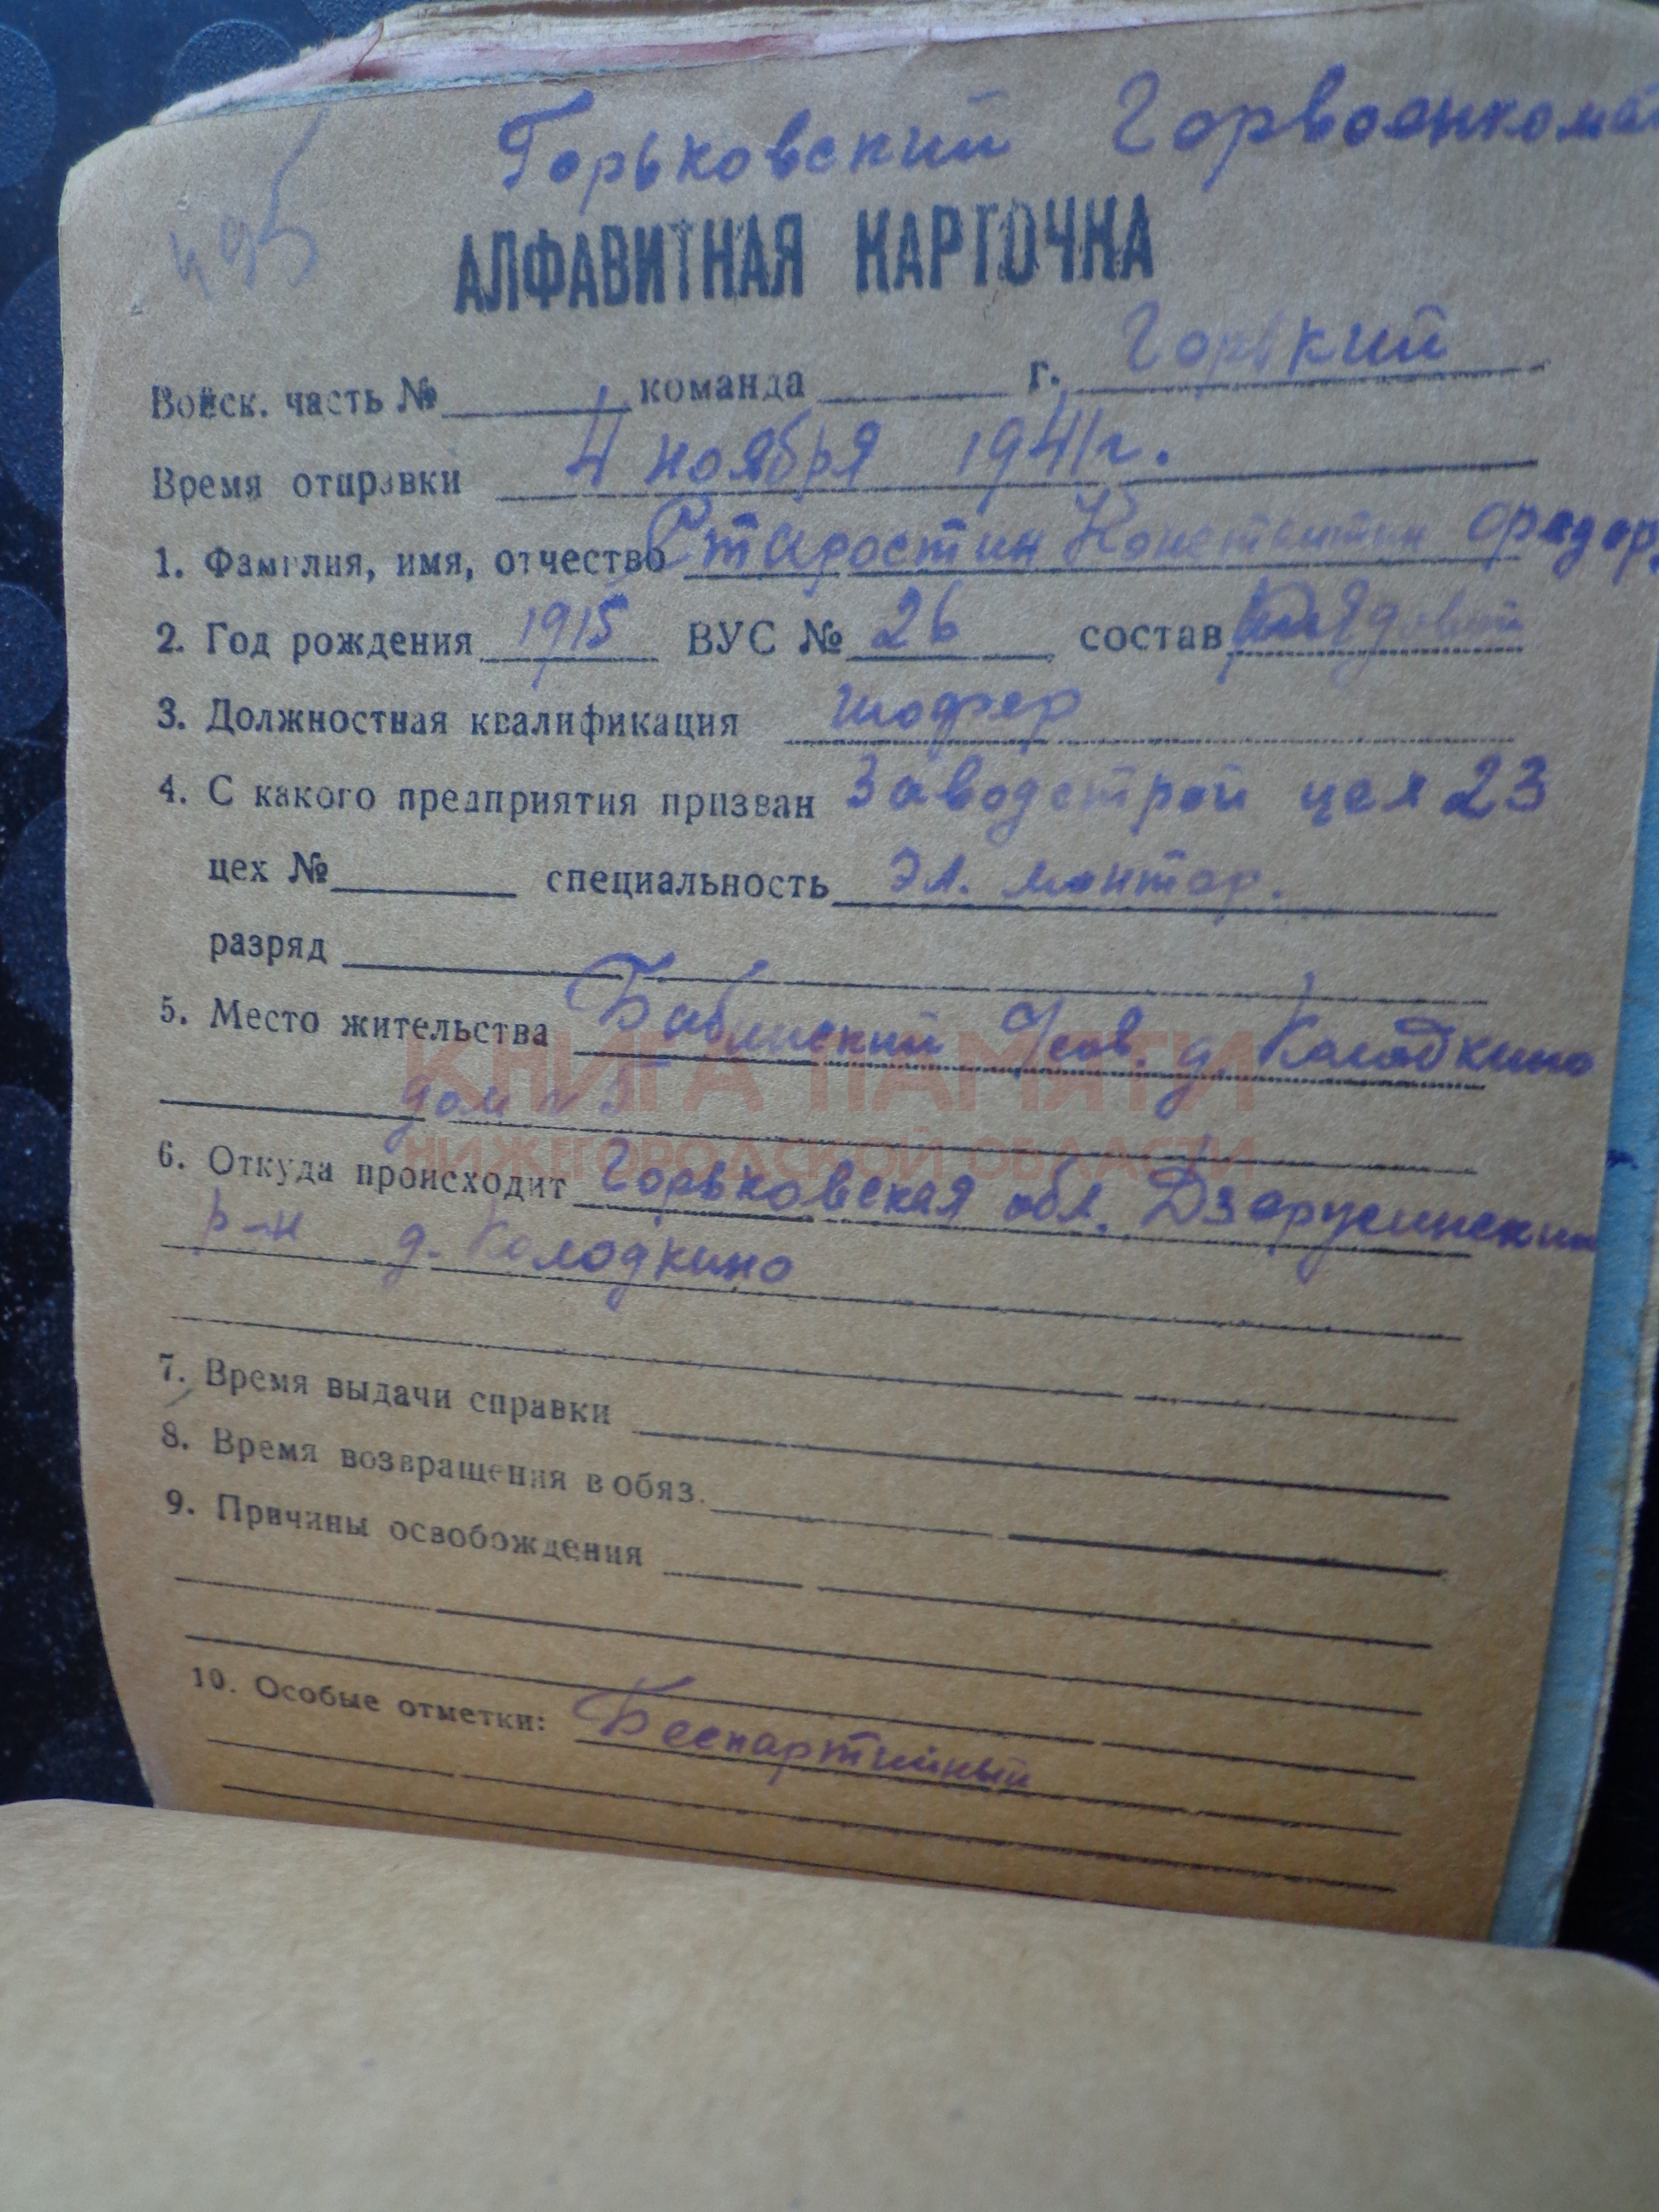 Горьковский Горвоенкомат
495
АЛФАВИТНАЯ КАРТОЧКА
Войск. часть № команда г. Горький
Время отправки 4 ноября 1941 г.
1. Фамилия, имя, отчество Старостин Константин Федор.
2. Год рождения 1915 ВУС № 26 состав рядовой
3. Должностная квалификация шофер
4. С какого предприятия призван Заводстрой цех 23
цех № специальность Эл. монтер.
разряд
5. Место жительства Бабинский д. Колодкино
дом № 5
КНИГА ПАМЯТИ
НИЖЕГОРОДСКОЙ ОБЛАСТИ
6. Откуда происходит Горьковская обл. Дзержинский
р-н д. Колодкино
7. Время выдачи справки
8. Время возвращения в обяз.
9. Причины освобождения
10. Особые отметки: Беспартийный